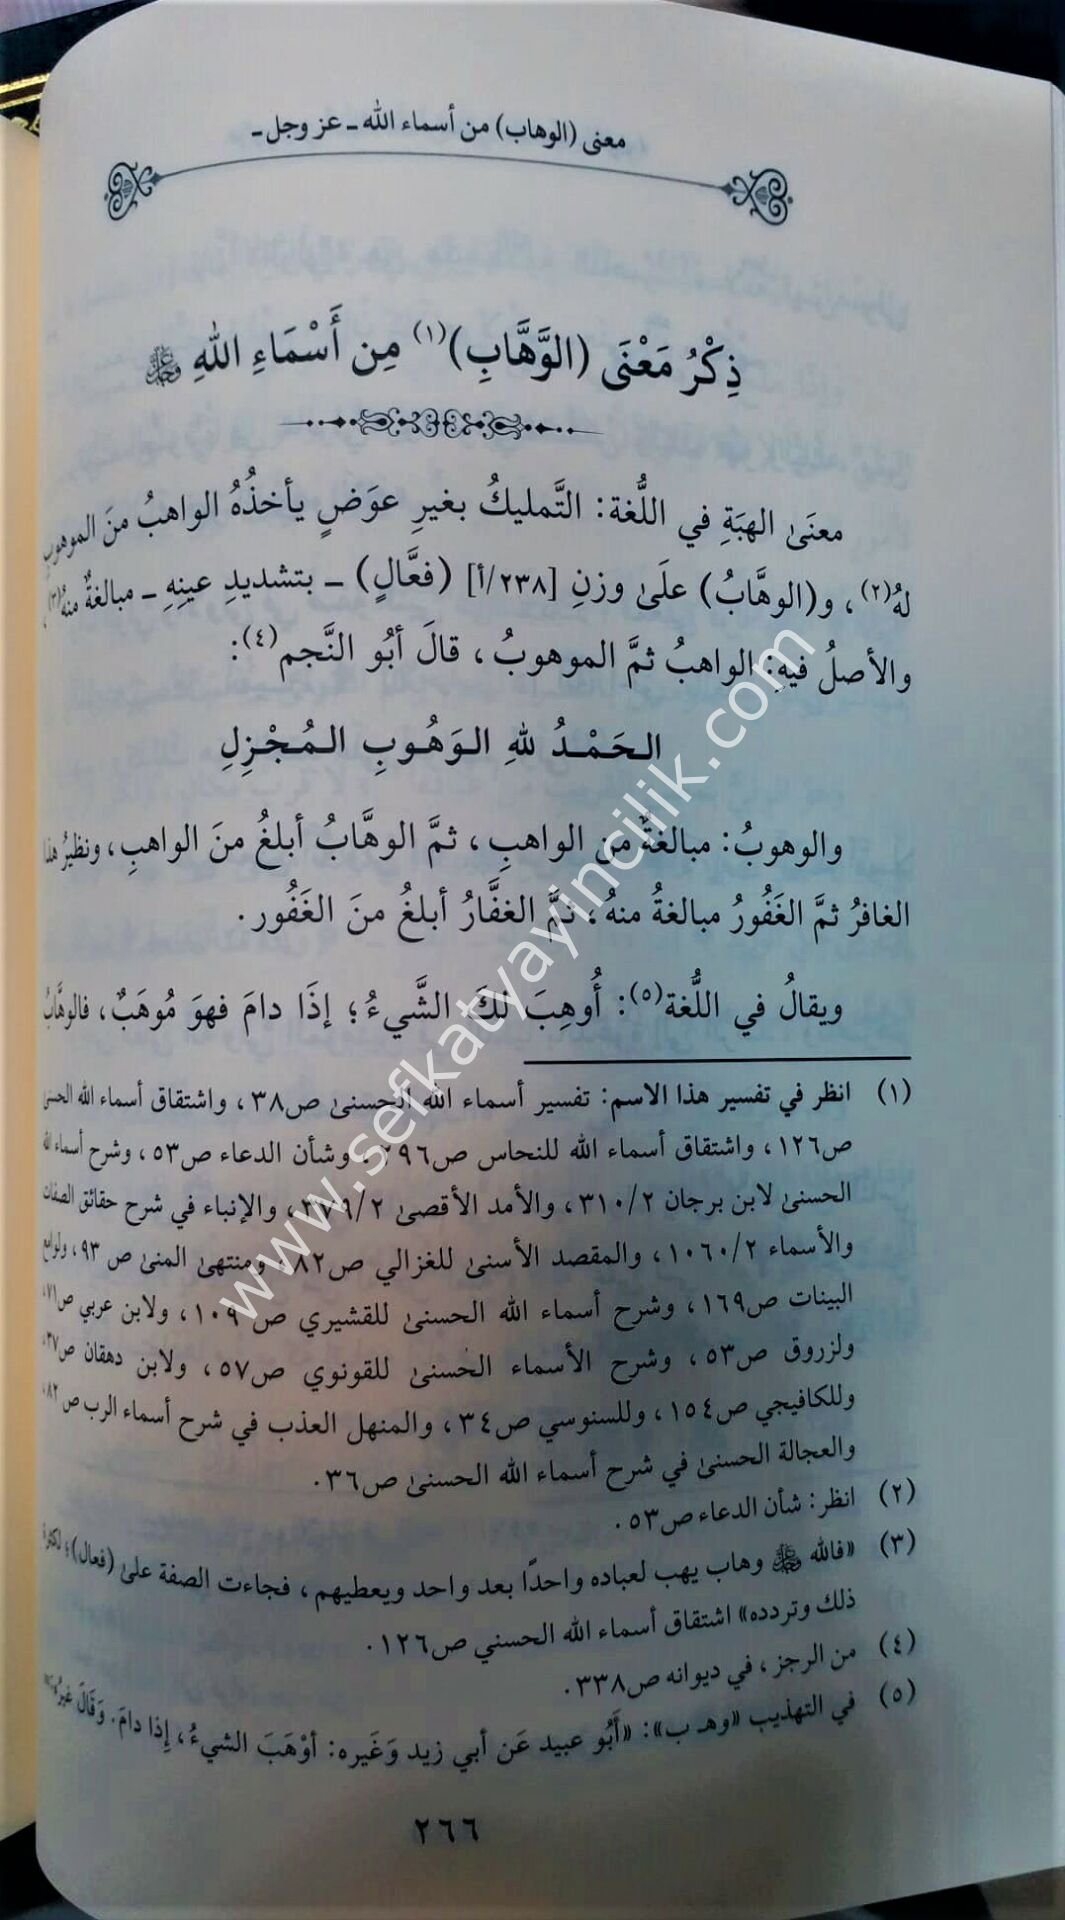 معنى (الوهاب) من أسماء الله ـ عز وجل ـ
ذِكْرُ مَعْنَى (الوَهَّابِ)(١) مِن أَسْمَاءِ اللهِ ﷻ
معنَى الهِبَةِ في اللُّغة: التَّمليكُ بغيرِ عوَضٍ يأخذُهُ الواهبُ منَ الموهوبِ
لهُ(٢)، و(الوهَّابُ) علَى وزنِ [٢٣٨/أ] (فعَّالٍ) ـ بتشديدِ عينِهِ ـ مبالغةٌ منهُ(٣)،
والأصلُ فيهِ: الواهبُ ثمَّ الموهوبُ، قالَ أبُو النَّجم(٤):
الحَمْدُ للهِ الوَهُوبِ المُجْزِلِ
والوهوبُ: مبالغةٌ من الواهبِ، ثمَّ الوهَّابُ أبلغُ منَ الواهبِ، ونظيرُ هذا
الغافرُ ثمَّ الغَفُورُ مبالغةُ منهُ؛ ثمَّ الغفَّارُ أبلغُ منَ الغَفُور.
ويقالُ في اللُّغة(٥): أُوهِبَ لكَ الشَّيءُ؛ إذَا دامَ فهوَ مُوهَبٌ، فالوهَّابُ
(١) انظر في تفسير هذا الاسم: تفسير أسماء الله الحسنى ص٣٨، واشتقاق أسماء الله الحسنى
ص١٢٦، واشتقاق أسماء الله للنحاس ص٢٩٦، وشأن الدعاء ص٥٣، وشرح أسماء الله
الحسنى لابن برجان ٣١٠/٢، والأمد الأقصى ٣٧٩/٢، والإنباء في شرح حقائق الصفات
والأسماء ١٠٦٠/٢، والمقصد الأسنى للغزالي ص٨٢، ومنتهى المنى ص ٩٣، ولوامع
البينات ص١٦٩، وشرح أسماء الله الحسنى للقشيري ص١٠٩، ولابن عربي ص٧١،
ولزروق ص٥٣، وشرح الأسماء الحسنى للقونوي ص٥٧، ولابن دهقان ص٣٧،
وللكافيجي ص١٥٤، وللسنوسي ص٣٤، والمنهل العذب في شرح أسماء الرب ص٨٢،
والعجالة الحسنى في شرح أسماء الله الحسنى ص٣٦.
(٢) انظر: شأن الدعاء ص٥٣.
(٣) «فالله ﷻ وهاب يهب لعباده واحدًا بعد واحد ويعطيهم، فجاءت الصفة على (فعال)؛ لكثرة
ذلك وتردده» اشتقاق أسماء الله الحسني ص١٢٦.
(٤) من الرجز، في ديوانه ص٣٣٨.
(٥) في التهذيب «وهـ ب»: «أَبُو عبيد عَن أبي زيد وَغَيره: أوْهَبَ الشيءُ، إِذا دامَ. وَقَالَ غيرُه:
٢٦٦
www.sefkatyayincilik.com